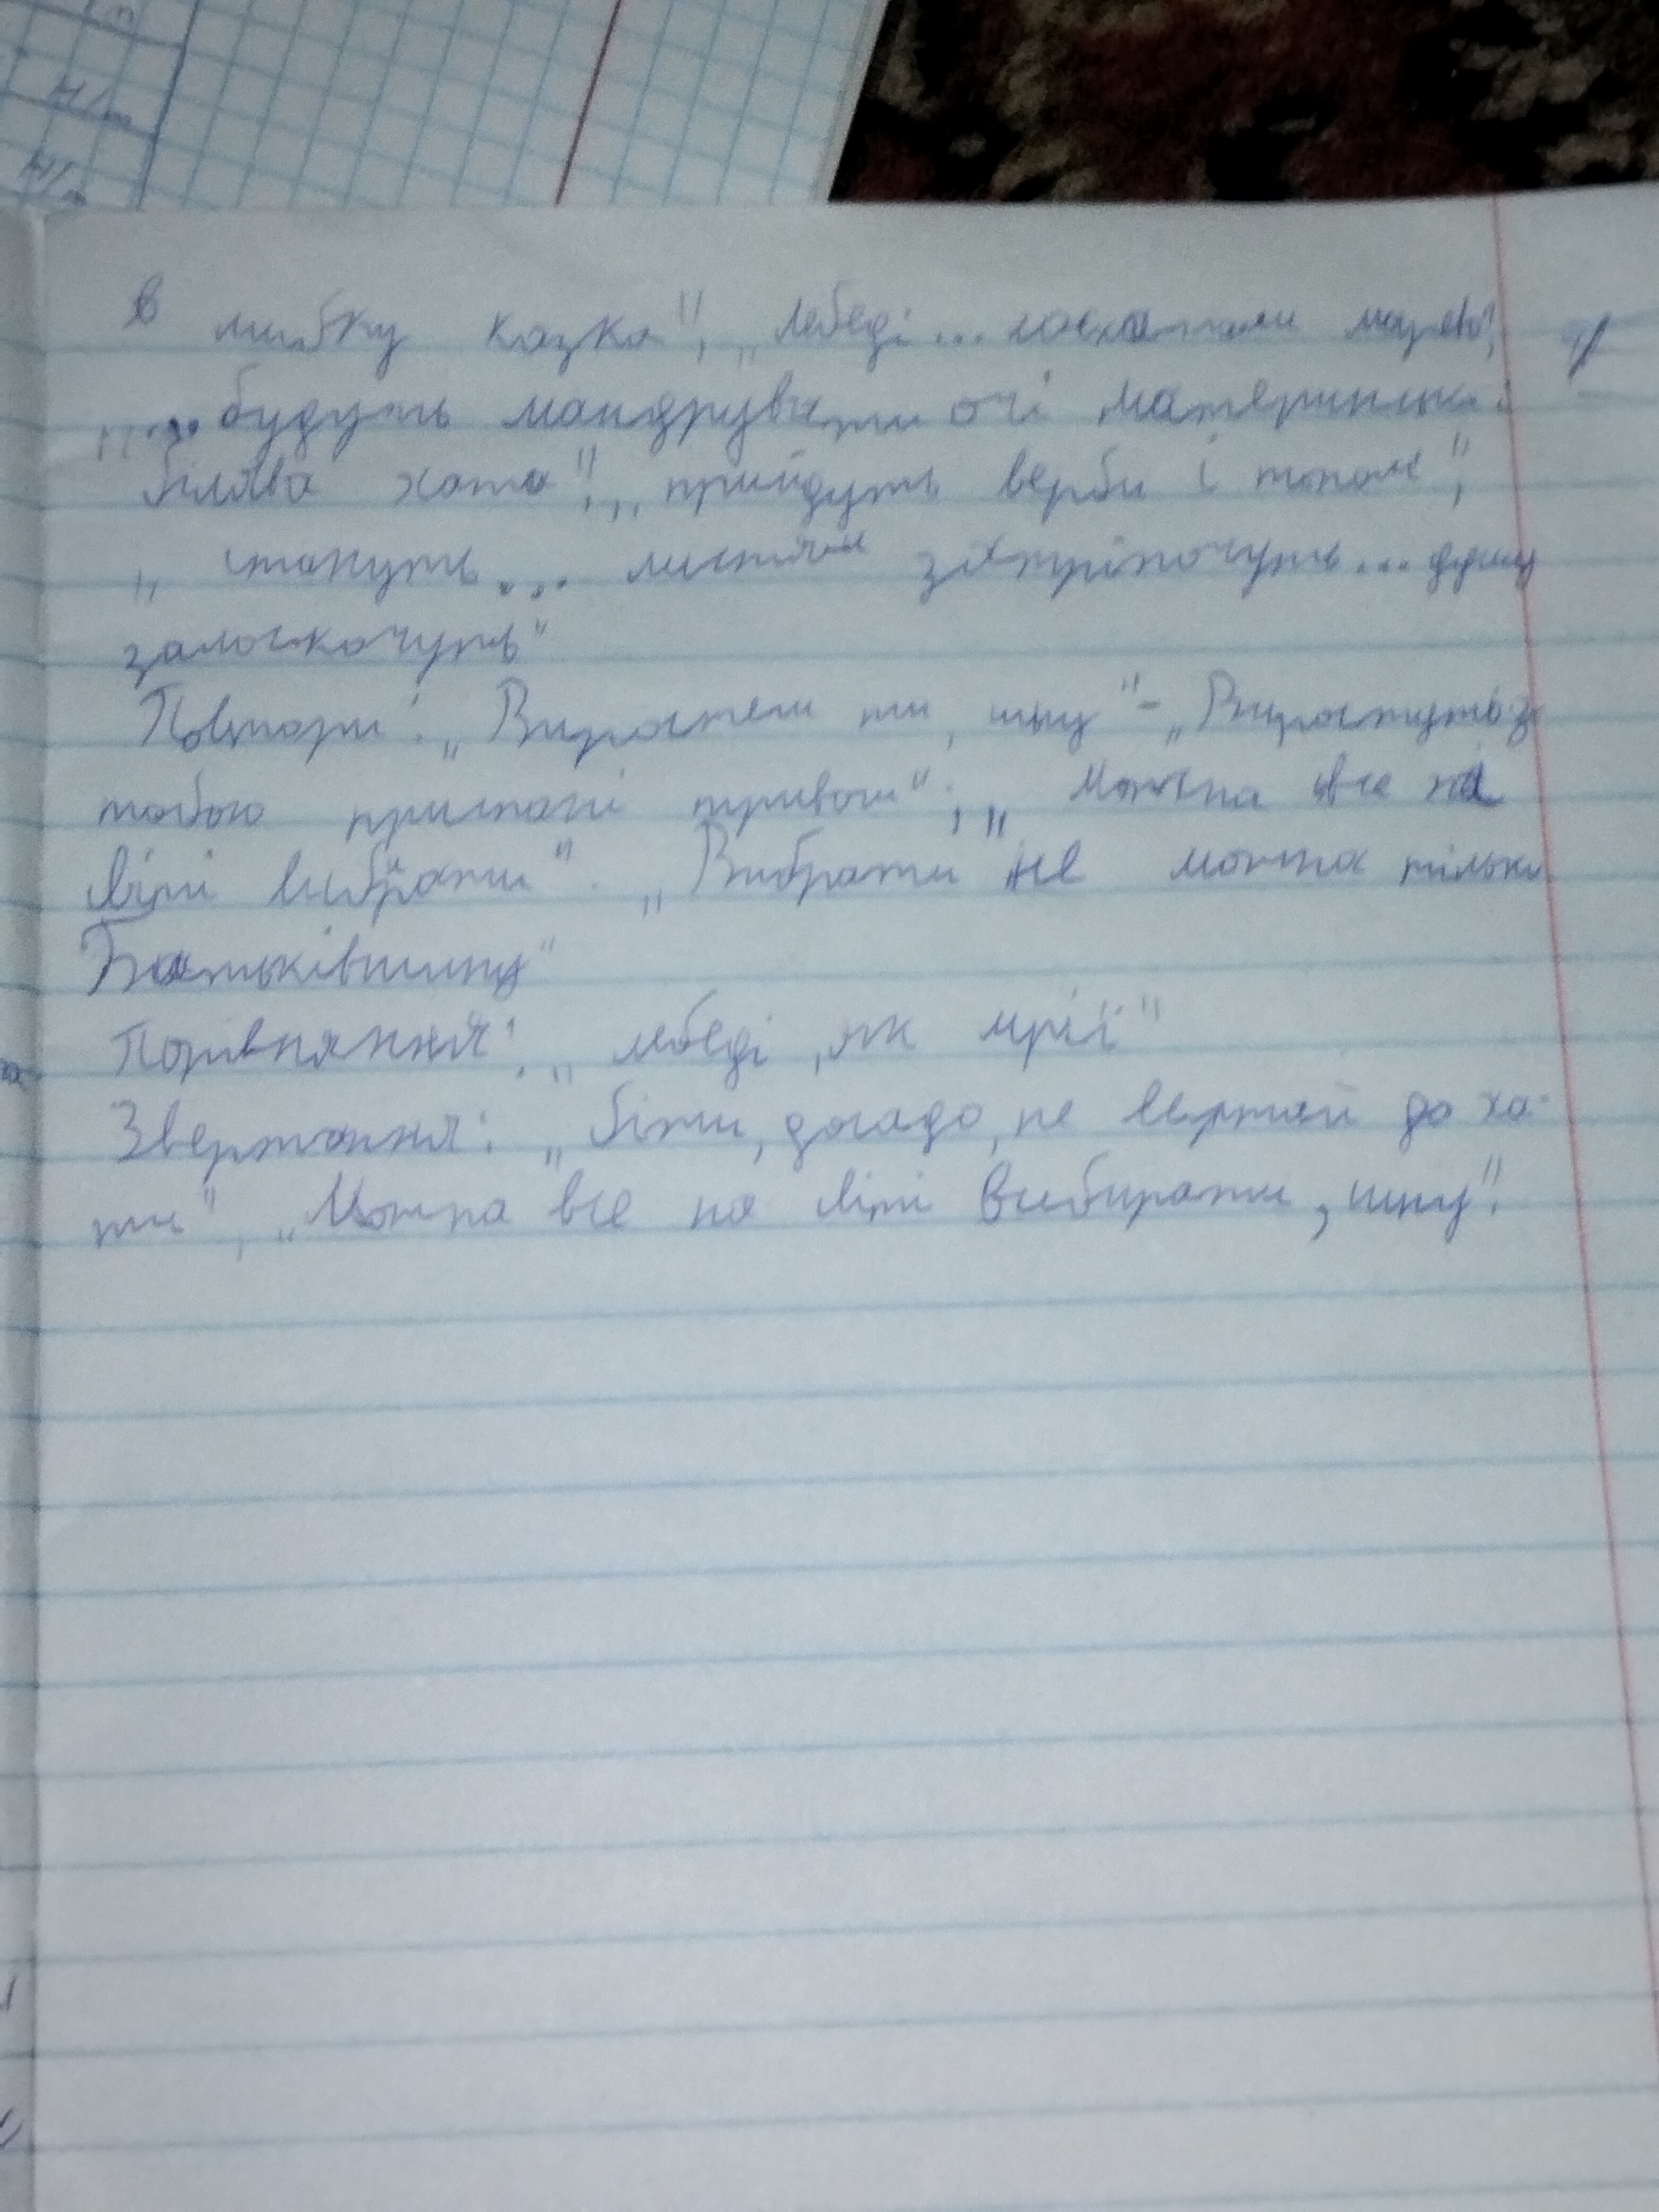 в шибку казка", „лебеді... ласкатали марно",
„... будуть мандрувати очі материнські
білява хата", „прийдуть верби і тополі",
„стануть... листям затріпочуть... душу
залоскочуть"
Повтори: „Виростеш ти, сину" - „Виростуть з
тобою приспані тривоги"; „Можна все на
світі вибрати". „Вибрати не можна тільки
Батьківщину"
Порівняння: „лебеді, як мрії"
Звертання: „Біжи, досадо, не вертай до ха-
ти", „Можна все на світі вибирати, сину".